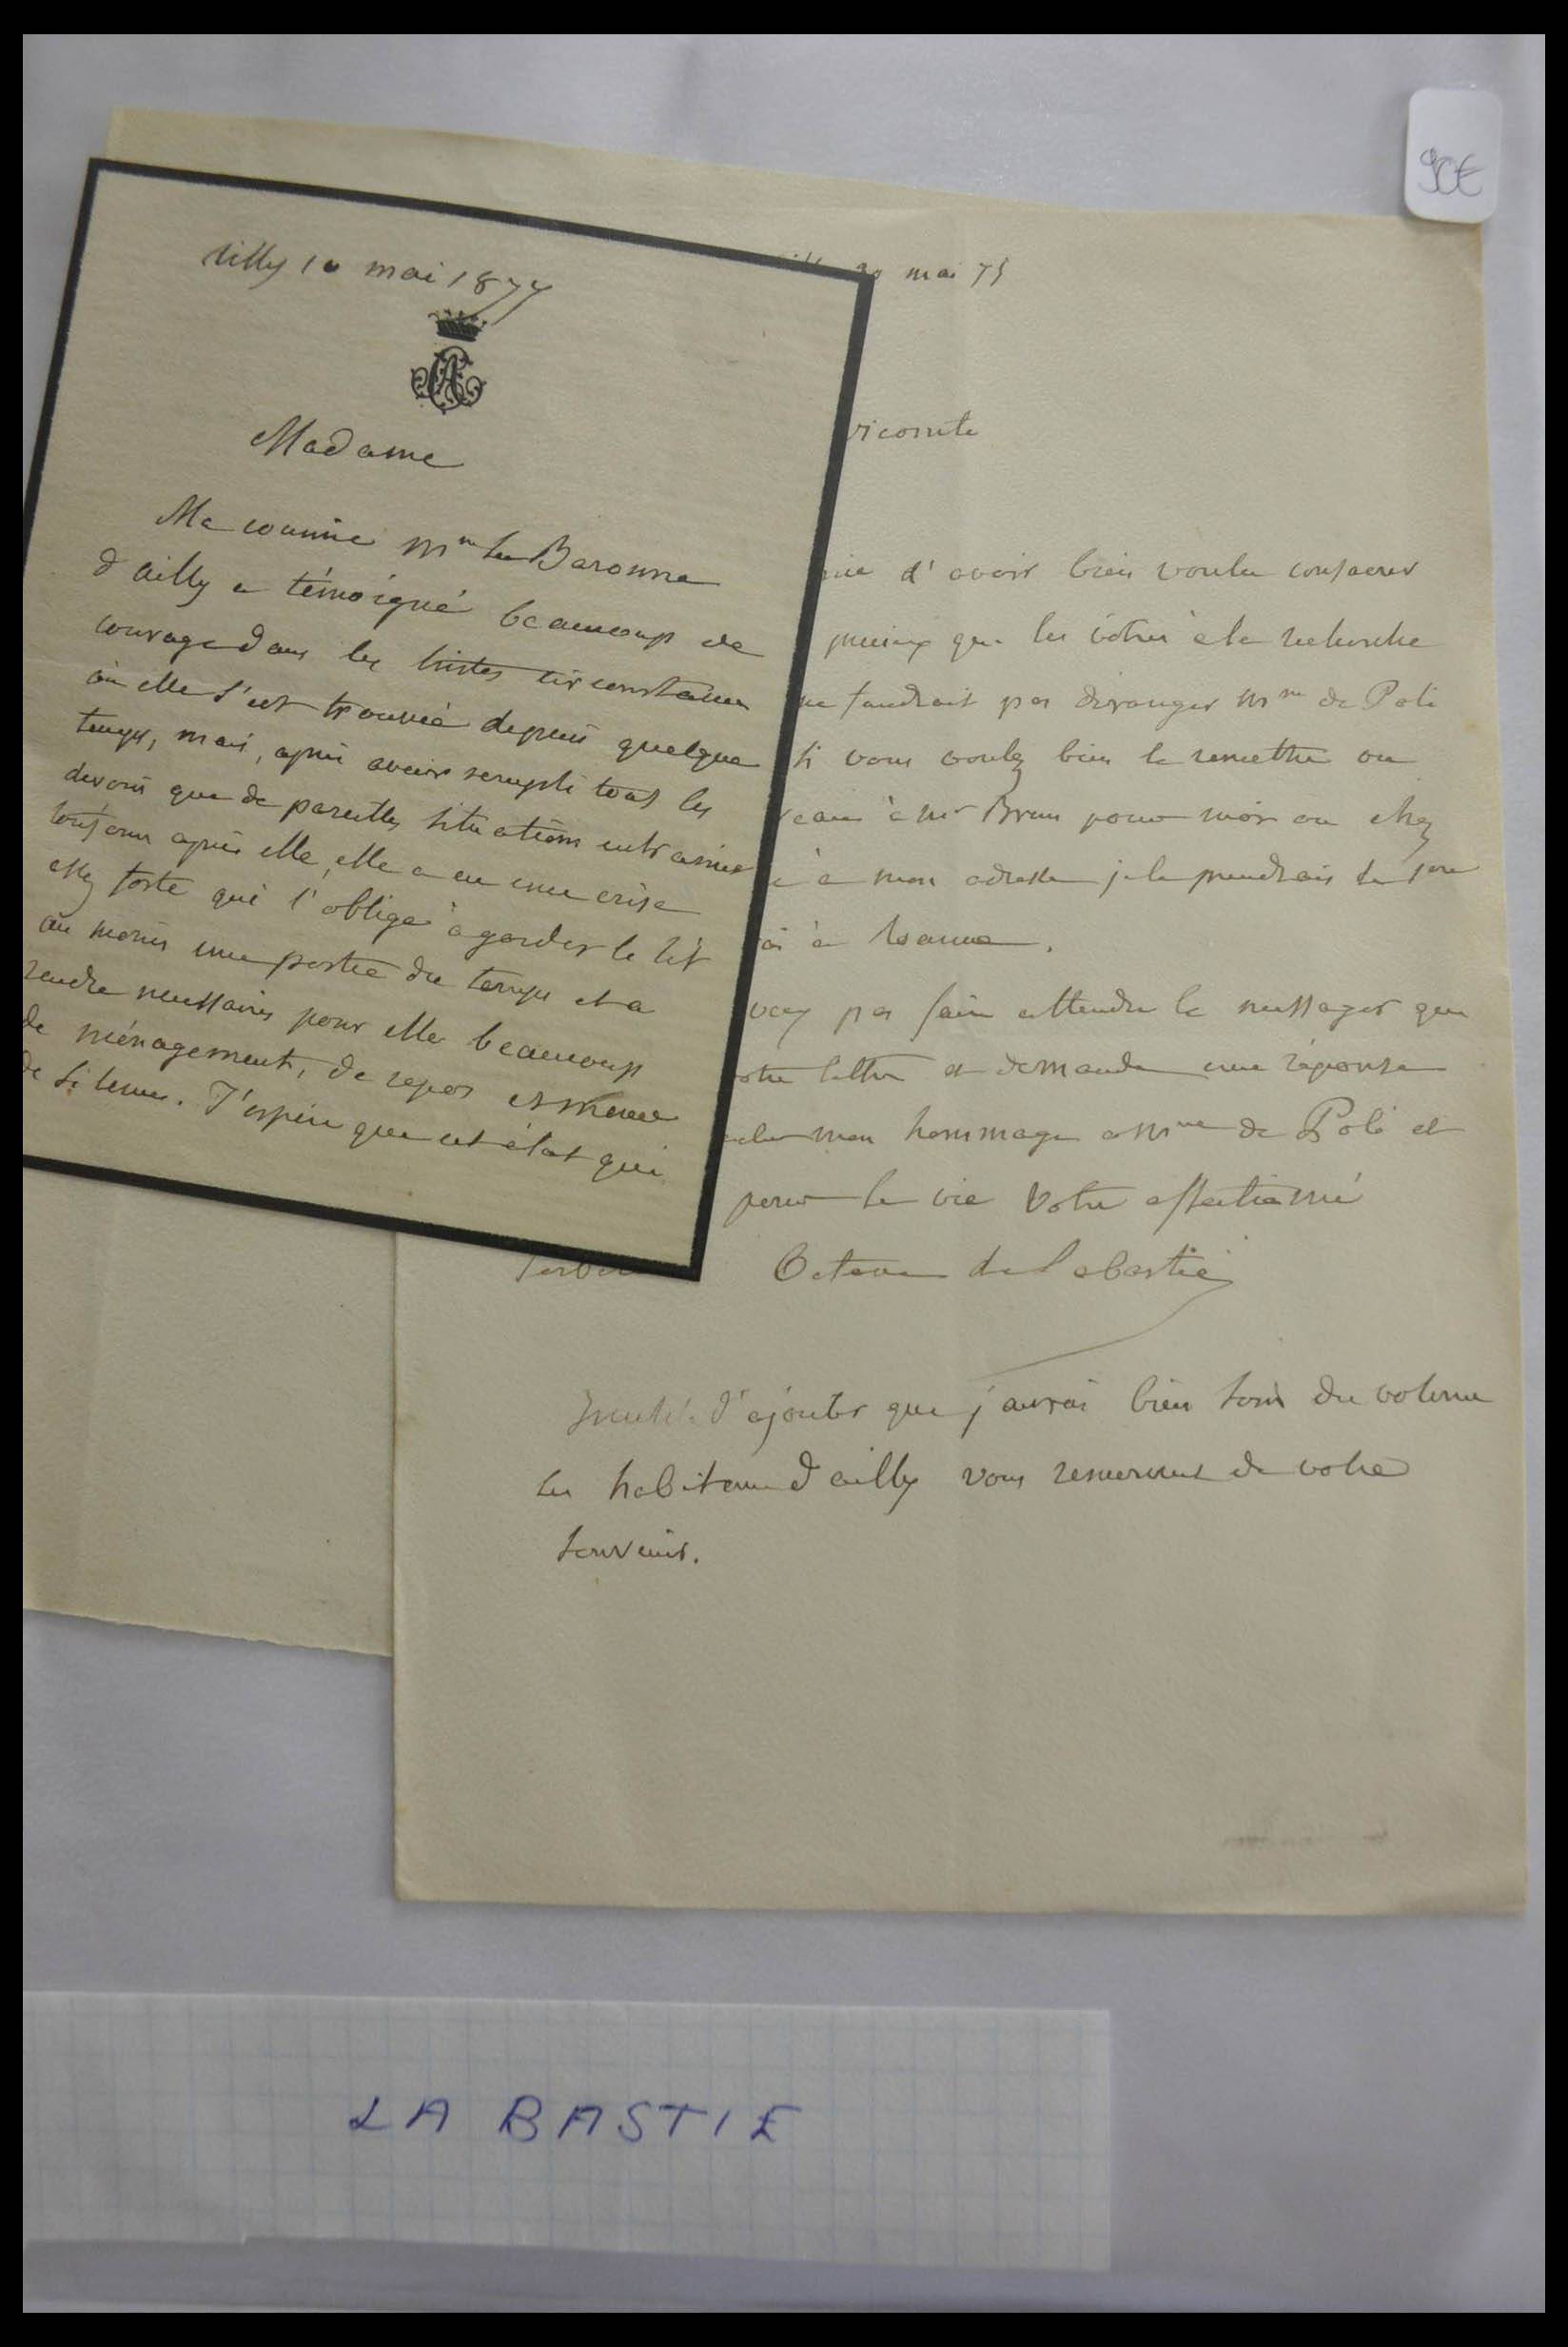 90€
ailly 10 mai 1877
Madame
Ma cousine Mme la Baronne
d'ailly a témoigné beaucoup de
courage dans les tristes circonstances
où elle s'est trouvée depuis quelque
temps, mais, après avoir rempli tous les
devoirs que de pareilles situations entrainent
toujours après elle, elle a eu une crise
assez forte qui l'oblige à garder le lit
au moins une partie du temps et a
rendre necessaires pour elle beaucoup
de ménagement, de repos et même
de silence. J'espère que cet état qui
30 mai 75
vicomte
d'avoir bien voulu consacrer
precieux que les vôtres à la recherche
ne faudrait pas déranger Mme de Poli
si vous voulez bien le remettre ou
à Mr Brun pour moi ou chez
à mon adresse je le prendrais
à Roanne.
pas faire attendre le messager que
votre lettre et demande une réponse
mon hommage a Mme de Poli et
pour la vie Votre affectionné
Octave de Labastie
Inutile d'ajouter que j'aurai bien soin du volume
les habitans d'ailly vous remercient de votre
souvenir.
LA BASTIE